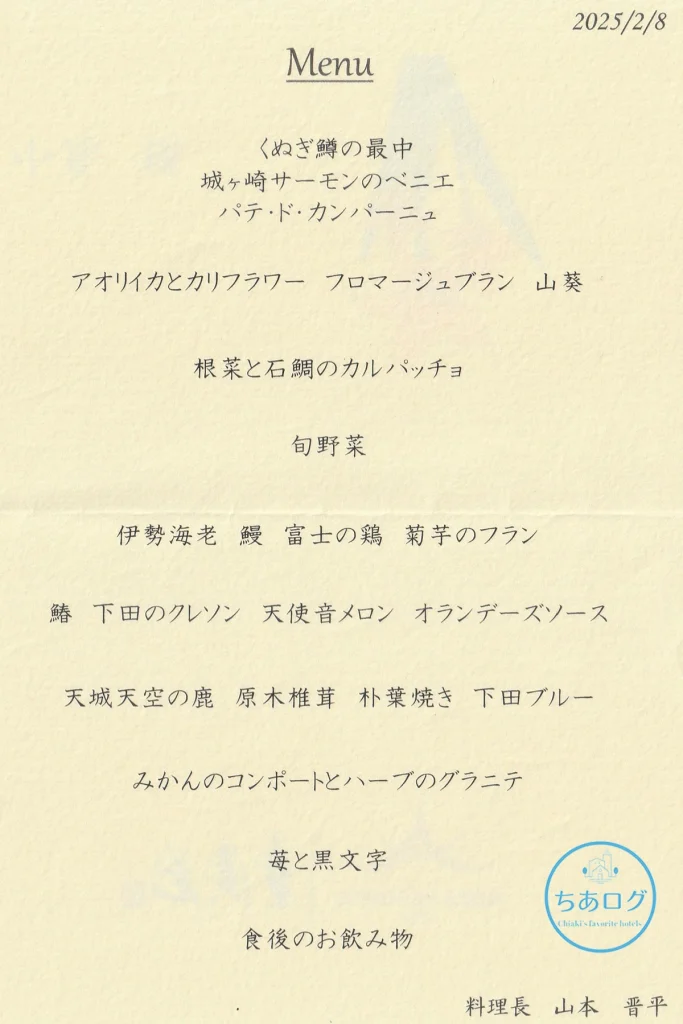 2025/2/8
Menu
くぬぎ鱒の最中
城ヶ崎サーモンのベニエ
パテ・ド・カンパーニュ
アオリイカとカリフラワー　フロマージュブラン　山葵
根菜と石鯛のカルパッチョ
旬野菜
伊勢海老　鰻　富士の鶏　菊芋のフラン
鰆　下田のクレソン　天使音メロン　オランデーズソース
天城天空の鹿　原木椎茸　朴葉焼き　下田ブルー
みかんのコンポートとハーブのグラニテ
苺と黒文字
ちあログ
Chiaki's favorite hotels
食後のお飲み物
料理長　山本　晋平